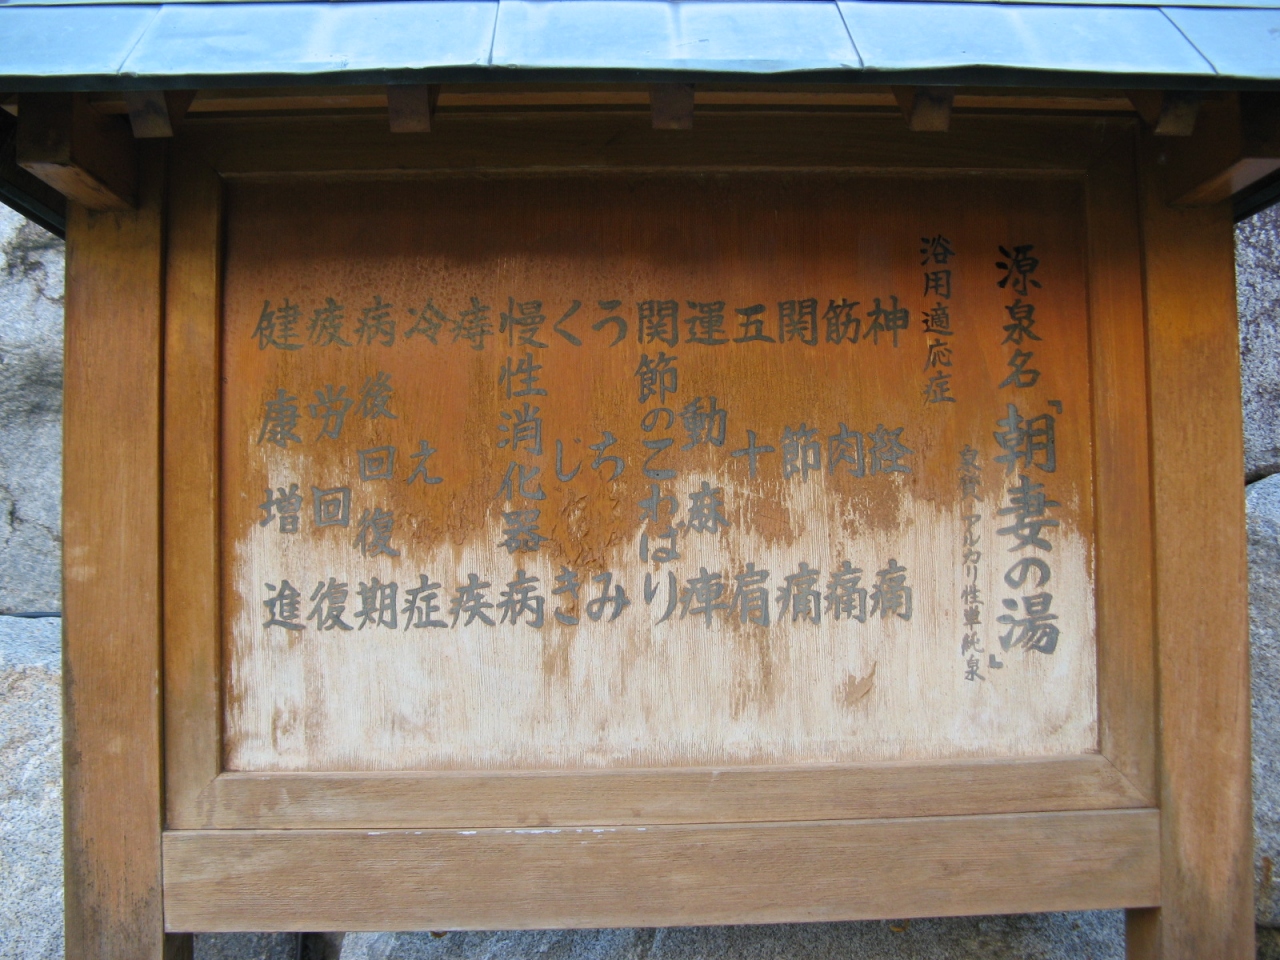 源泉名「朝妻の湯」
泉質 アルカリ性単純泉
浴用適応症
神経痛
筋肉痛
関節痛
五十肩
運動麻痺
関節のこわばり
うちみ
くじき
慢性消化器病
痔疾
冷え症
病後回復期
疲労回復
健康増進